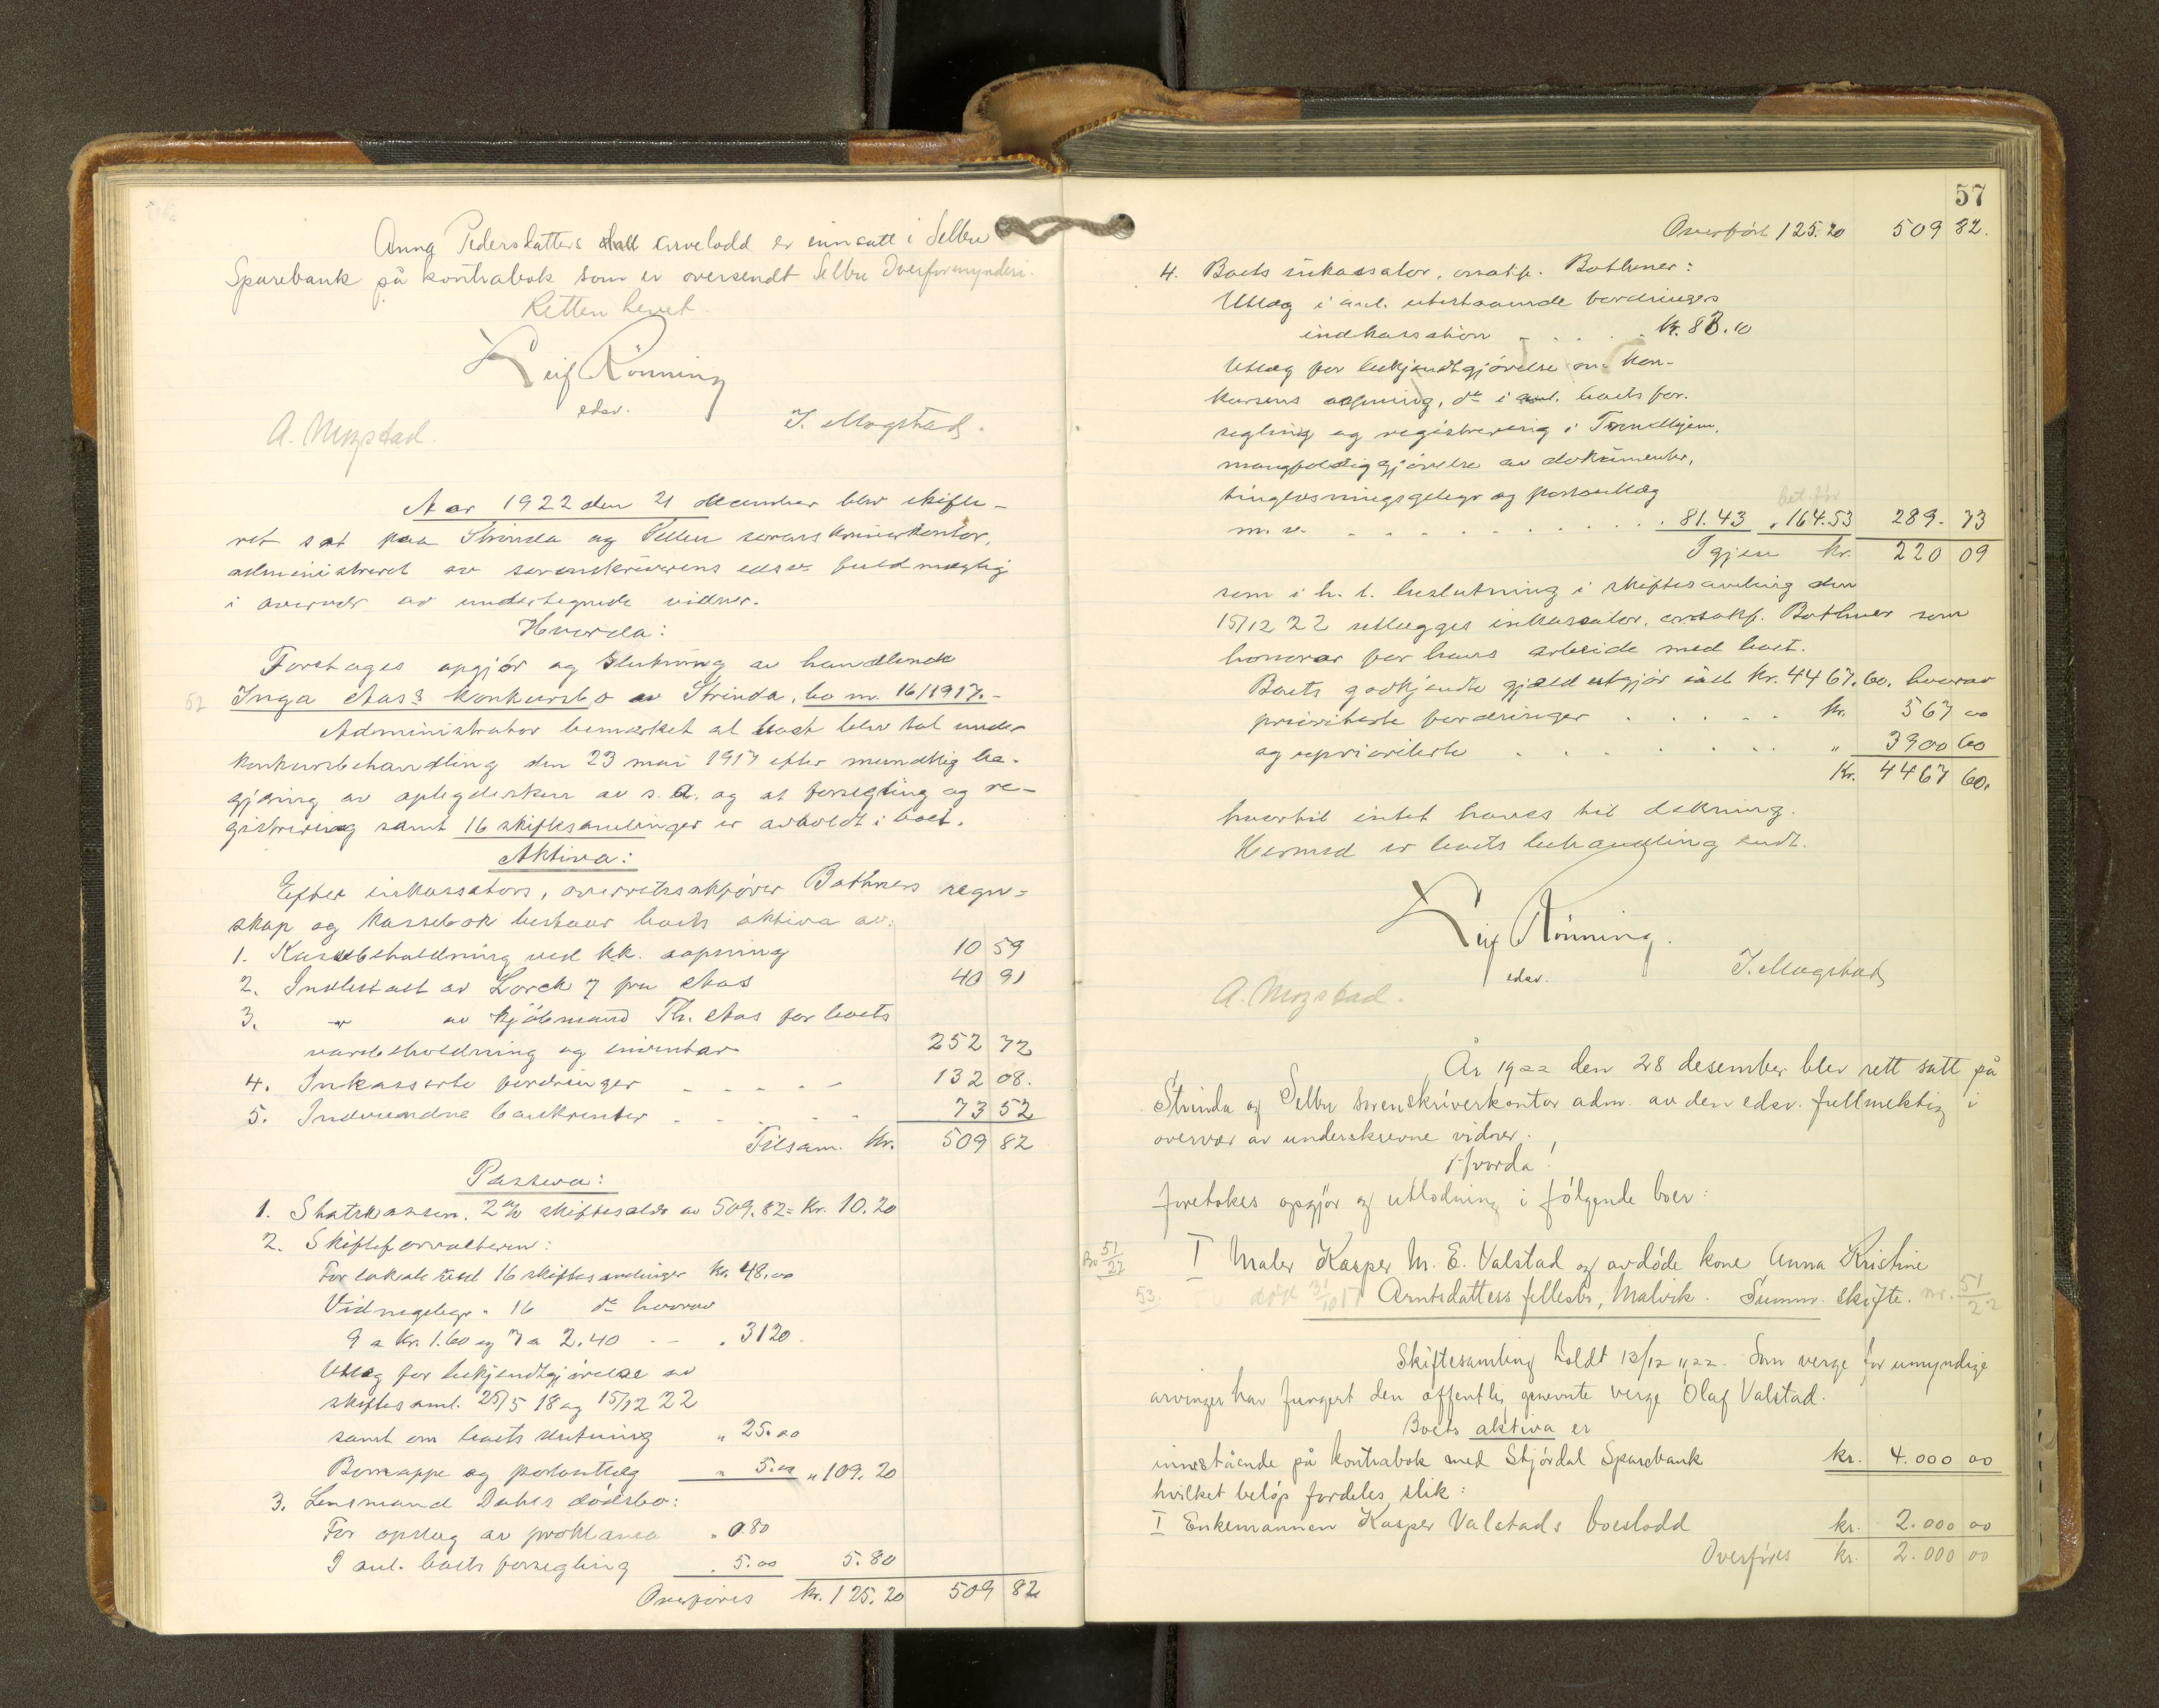 Anna Pedersdatters arvelodd er innsatt i Selbu
Sparebank på kontrabok som er oversendt Selbu Overformynderi.
Retten hevet.
Leif Rönning
edsv.
A. Mogstad.
J. Mogstad.
Aar 1922 den 21 december blev skifte-
ret sat paa Strinda og Selbu sorenskriverkontor,
administreret av sorenskriverens edsv. fuldmægtig
i overvær av undertegnede vidner.
Hvorda:
Foretages opgjör og slutning av handlende
52 Inga Aas's konkursbo av Strinda, bo nr. 16/1917.-
Administrator bemerket at boet blev tat under
konkursbehandling den 23 mai 1917 efter mundtlig be-
gjæring av opbydersken av s. d. og at forsegling og re-
gistrering samt 16 skiftesamlinger er avholdt i boet.
Aktiva:
Efter inkassators, overretssakförer Bothners regn-
skap og kassebok bestaar boets aktiva av:
1. Kassebeholdning ved kk. aapning 10 59
2. Indbetalt av Lorck 7 fru Aas 40 91
3. - " - av kjöbmand Th. Aas for boets
varebeholdning og inventar 252 72
4. Inkasserte fordringer - - - - - 132 08.
5. Indvundne bankrenter . . . . 73 52
Tilsam. Kr. 509 82
Passiva:
1. Statskassen. 2% skiftesaldo av 509.82 = Kr. 10.20
2. Skifteforvalteren:
For lokale til 16 skiftesamlinger Kr. 48.00
Vidnegebyr " 16 do hvorav
9 a Kr. 1.60 og 7 a 2.40 - - " 31 20
Utlæg for bekjendtgjörelse av
skiftesaml. 25/5 18 og 15/12 22
samt om boets slutning " 25.00
Bomappe og portoutlæg " 5.00 " 109.20
3. Lensmand Dahls dödsbo:
For opslag av proklama " 0.80
I anl. boets forsegling " 5.00 5.80
Overföres kr. 125.20 509 82
57
Overfört 125.20 509 82.
4. Boets inkassator, orsakf. Bothner:
Utlæg i anl. utestaaende fordringers
indkassation - . . . . kr. 83.10
Utlæg for bekjendtgjörelse om kon-
kursens aapning, do i anl. boets for-
segling og registrering i Trondhjem,
mangfoldiggjörelse av dokumenter,
tinglæsningsgebyr og portoutlæg
m. v. . . . . . . . . 81.43 " 164.53 289. 73
Igjen kr. 220 09
som i h. t. beslutning i skiftesamling den
15/12 22 utlægges inkassator, orsakf. Bothner som
honorar for hans arbeide med boet.
Boets godkjendte gjæld utgjör ialt kr. 4467.60. hvorav
prioriterte fordringer . . . . . kr. 567 00
og uprioriterte . . . . . . . " 3900 60
Kr. 4467 60.
hvortil intet haves til dekning.
Hermed er boets behandling endt.
Leif Rönning.
edsv.
A. Mogstad.
J. Mogstad
År 1922 den 28 desember blev rett satt på
Strinda og Selbu sorenskriverkontor adm. av den edsv. fullmektig i
overvær av underskrevne vidner.
Hvorda!
foretokes opgjör og utlodning i fölgende boer:
Bo 51/22 I Maler Kasper M. E. Valstad og avdöde kone Anna Kristine
53. död Arntsdatters fellesbo, Malvik. Summ. skifte. nr. 51/22
Skiftesamling holdt 13/12 1922. Som verge for umyndige
arvinger har fungert den offentlig opnevnte verge Olaf Valstad.
Boets aktiva er
innestående på kontrabok med Stjördal Sparebank kr. 4.000 00
hvilket belöp fordeles slik:
I Enkemannen Kasper Valstads boeslodd kr. 2.000 00
Overföres kr. 2.000 00